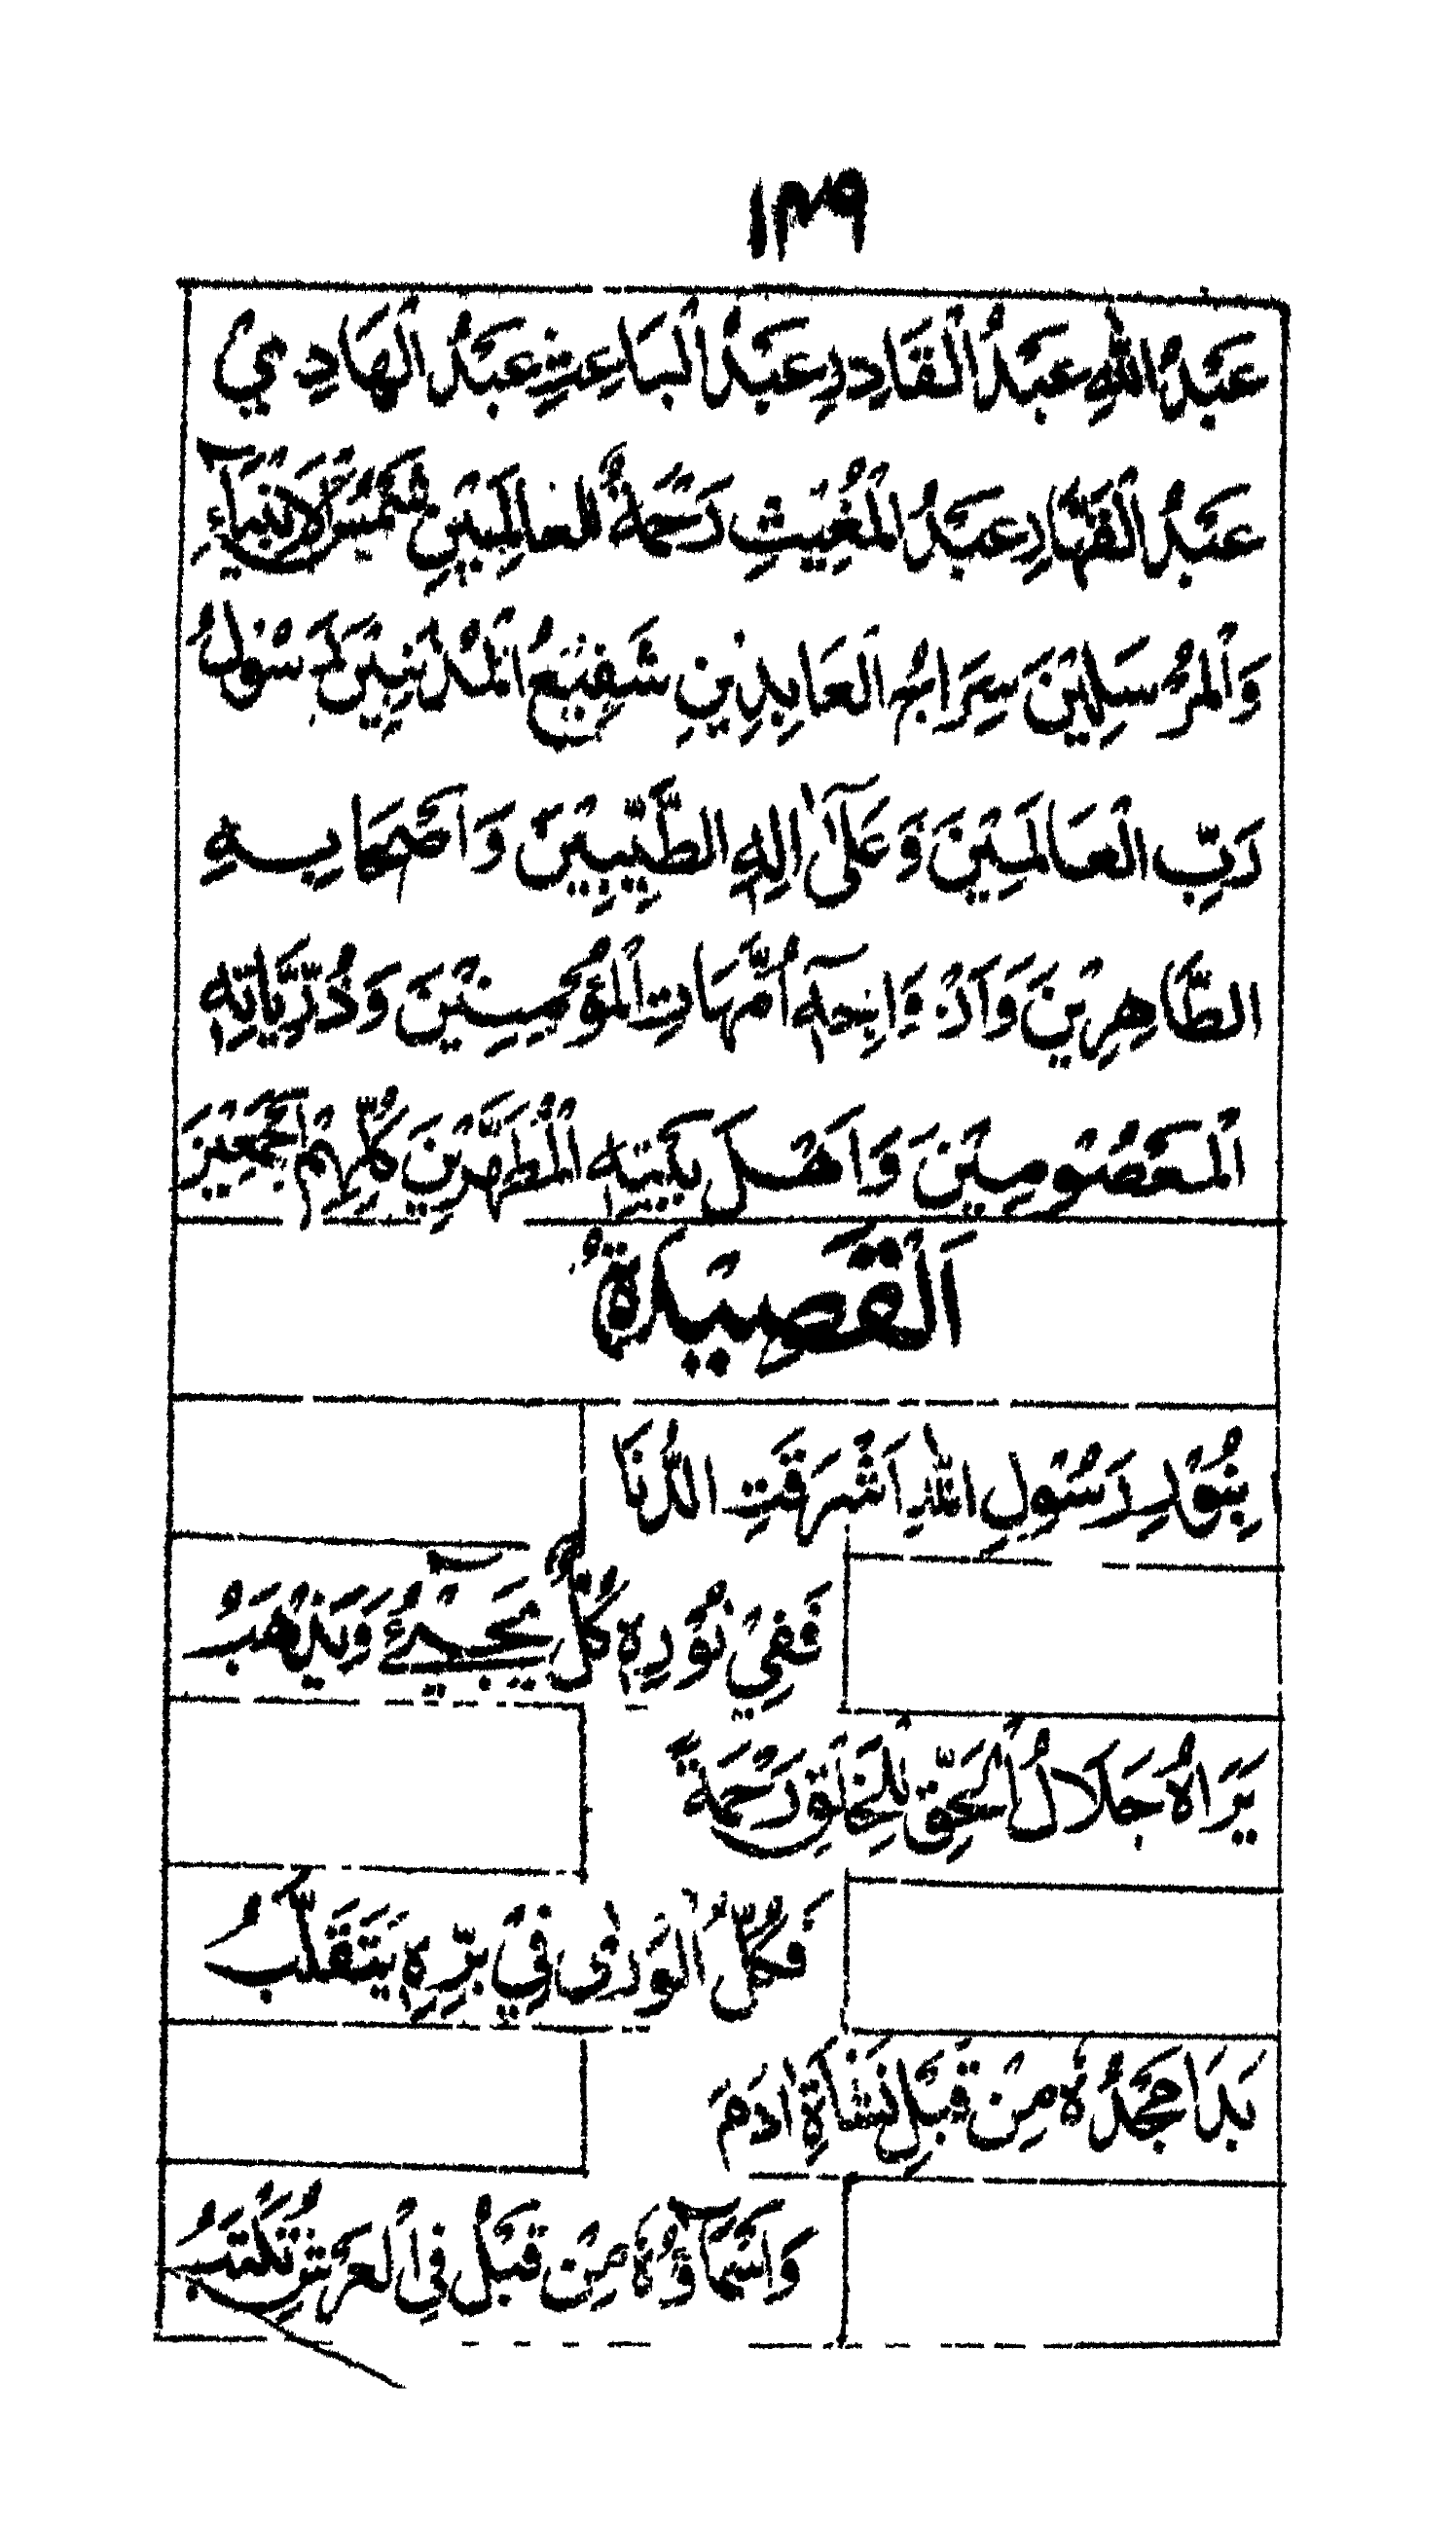 ١٣٩
عَبْدُ اللهِ عَبْدُ الْقَادِرِ عَبْدُ الْبَاعِثِ عَبْدُ الْهَادِيْ
عَبْدُ الْقَهَّارِ عَبْدُ الْمُغِيْثِ رَحْمَةٌ لِلْعَالَمِيْنَ شَمْسُ الْاَنْبِيَآءِ
وَالْمُرْسَلِيْنَ سِرَاجُ الْعَابِدِيْنِ شَفِيْعُ الْمُذْنِبِيْنَ رَسُوْلُ
رَبِّ الْعَالَمِيْنَ وَعَلٰى اٰلِهِ الطَّيِّبِيْنَ وَاَصْحَابِهِ
الطَّاهِرِيْنَ وَاَزْوَاجِهٖ اُمَّهَاتِ الْمُؤْمِنِيْنَ وَذُرِّيَّاتِهٖ
الْمَعْصُوْمِيْنَ وَاَهْلَ بَيْتِهِ الْمُطَهَّرِيْنَ كُلِّهِمْ اَجْمَعِيْنَ
اَلْقَصِيْدَةُ
بِنُوْرِ رَسُوْلِ اللهِ اَشْرَقَتِ الدُّنَا
فَفِيْ نُوْرِهٖ كُلٌّ يَجِيْٓءُ وَيَذْهَبُ
يَرَاهُ جَلَالُ الْحَقِّ لِلْخَلْقِ رَحْمَةً
فَكُلُّ الْوَرٰى فِيْ بِرِّهٖ يَتَقَلَّبُ
بَدَا مَجْدُهٗ مِنْ قَبْلِ نَشْاَةِ اٰدَمَ
وَاَسْمَآؤُهٗ مِنْ قَبْلُ فِى الْعَرْشِ تُكْتَبُ